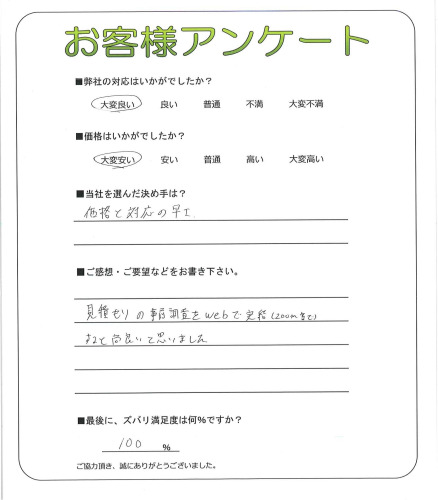 お客様アンケート
■弊社の対応はいかがでしたか？
大変良い 良い 普通 不満 大変不満
■価格はいかがでしたか？
大変安い 安い 普通 高い 大変高い
■当社を選んだ決め手は？
価格と対応の早エ
■ご感想・ご要望などをお書き下さい。
見積もりの事前調査をwebで完結(zoom等で)
すると尚良いと思いました
■最後に、ズバリ満足度は何％ですか？
100 ％
ご協力頂き、誠にありがとうございました。